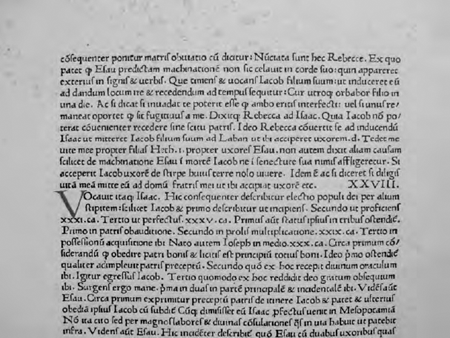 cõsequenter ponitur matris obuiatio cũ dicitur: Nũciata sunt hec Rebecce. Ex quo
patet ꝙ Esau predictam machinationē non sic celauit in corde suo: quin appareret
exterius in signis & uerbis. Que timens & uocans Iacob filium suum ut induceret eũ
ad dandum locum ire & recedendum ad tempus sequitur: Cur utroq; orbabor filio in
una die. Ac si dicat si inuadat te poterit esse ꝙ ambo eritis interfecti: uel si unus re/
maneat oportet ꝙ sit fugitiuus a me. Dixitq; Rebecca ad Isaac. Quia Iacob nõ po/
terat cõuenienter recedere sine scitu patris. Ideo Rebecca cõuertit se ad inducendũ
Isaac ut mitteret Iacob filium suum ad Laban ut ibi acciperet uxorem. d. Tedet me
uite mee propter filias Heth. i. propter uxores Esau. non autem dixit aliam causam
scilicet de machinatione Esau i mortē Iacob ne i senectute sua nimis affligeretur. Si
acceperit Iacob uxorē de stirpe huius terre nolo uiuere. Idem ē ac si diceret si diligis
uitā meā mitte eũ ad domũ fratris mei ut ibi accipiat uxorē etc. XXVIII.
Vocauit itaq; Isaac. Hic consequenter describitur electio populi dei per alium
stipitem scilicet Iacob & primo describitur ut incipiens. Secundo ut proficiens
xxxi. ca. Tertio ut perfectus. xxxv. ca. Primus aũt status ipsius in tribus ostendit.
Primo in patris obauditione. Secundo in prolis multiplicatione. xxix. ca. Tertio in
possessionũ acquisitione ibi Nato autem Ioseph in medio. xxx. ca. Circa primum cõ/
siderandũ ꝙ obedire patri bonis & licitis est principiũ totius boni. Ideo p̃mo ostendit
qualiter adimpleuit patris preceptũ. Secundo quō ex hoc recepit diuinum oraculum
ibi. Igitur egressus Iacob. Tertio quomodo ex hoc reddidit deo gratum obsequium
ibi. Surgens ergo mane. p̃ma in duas in partē principalē & incidentalē ibi. Vidēs aũt
Esau. Circa primum exprimitur preceptũ patris de itinere Iacob & patet & ulterius
obediā ipsius Iacob cũ subdit Cũq; dimisisset eũ Isaac p̃fectus uenit in Mesopotamiā
Nõ ita cito sed per magnos labores & diuinas cōsolationes
infra. Videns aũt Esau. Hic incidēter describit quō Esau cũ duabus uxoribus quas